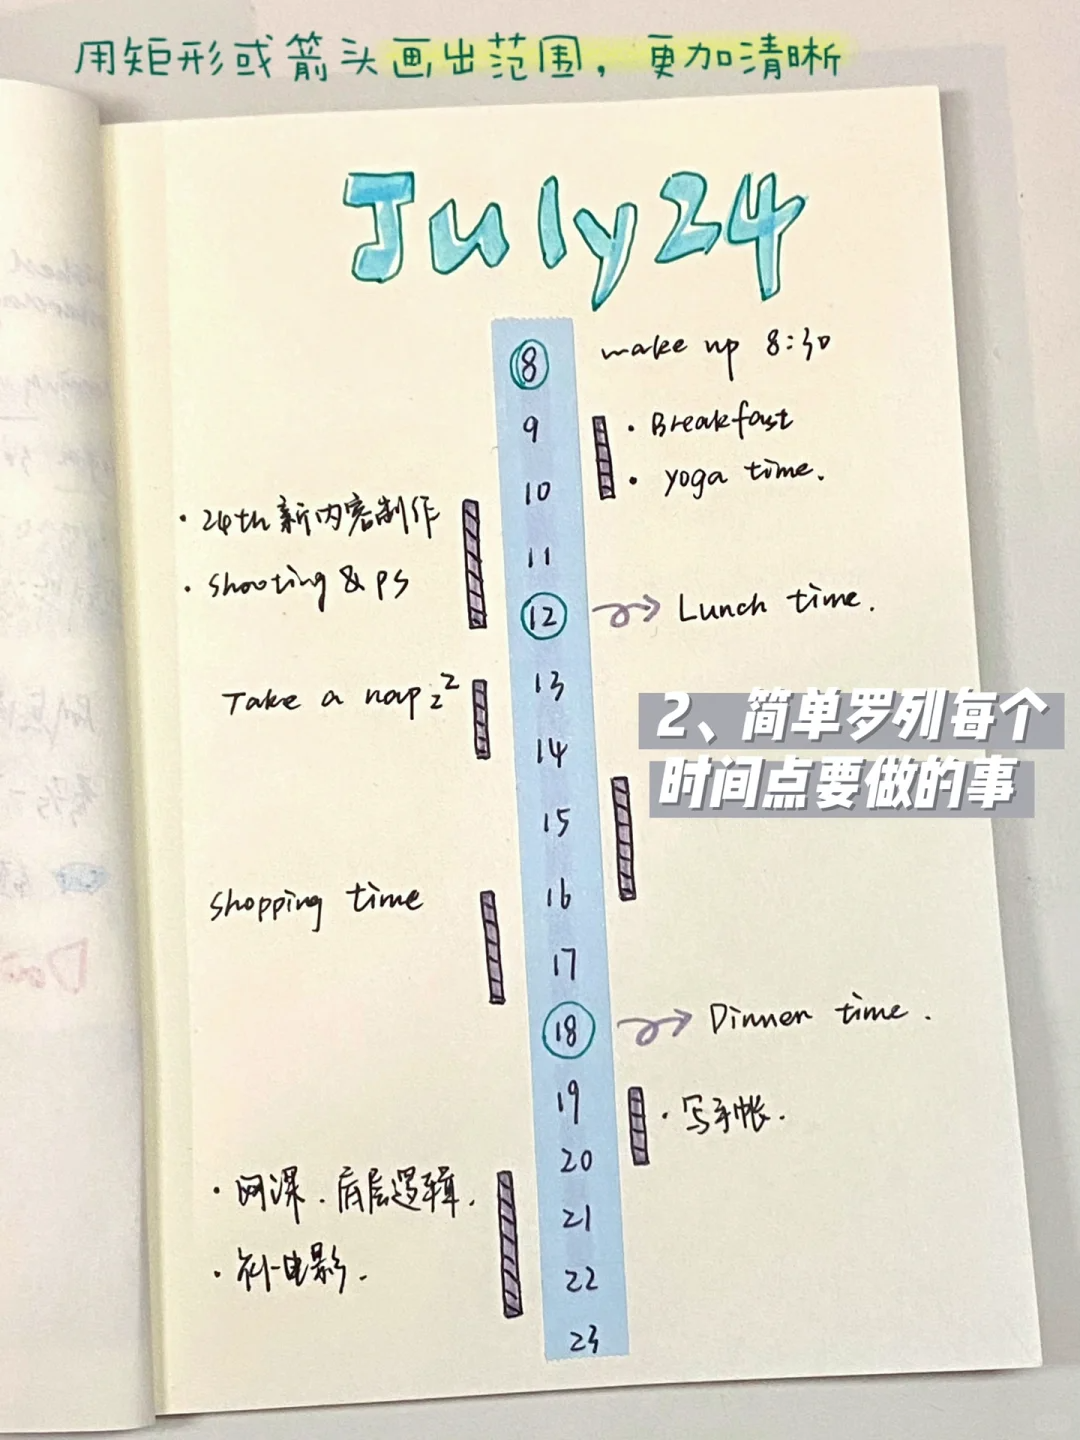 用矩形或箭头画出范围，更加清晰
July 24
8
make up 8:30
9
· Breakfast
· yoga time.
10
· 24th 新内容制作
11
· shooting & ps
12
Lunch time.
13
Take a nap zz
14
2、简单罗列每个
时间点要做的事
15
16
shopping time
17
18
Dinner time.
19
· 写手帐.
20
· 网课. 底层逻辑.
21
22
· 补电影.
23